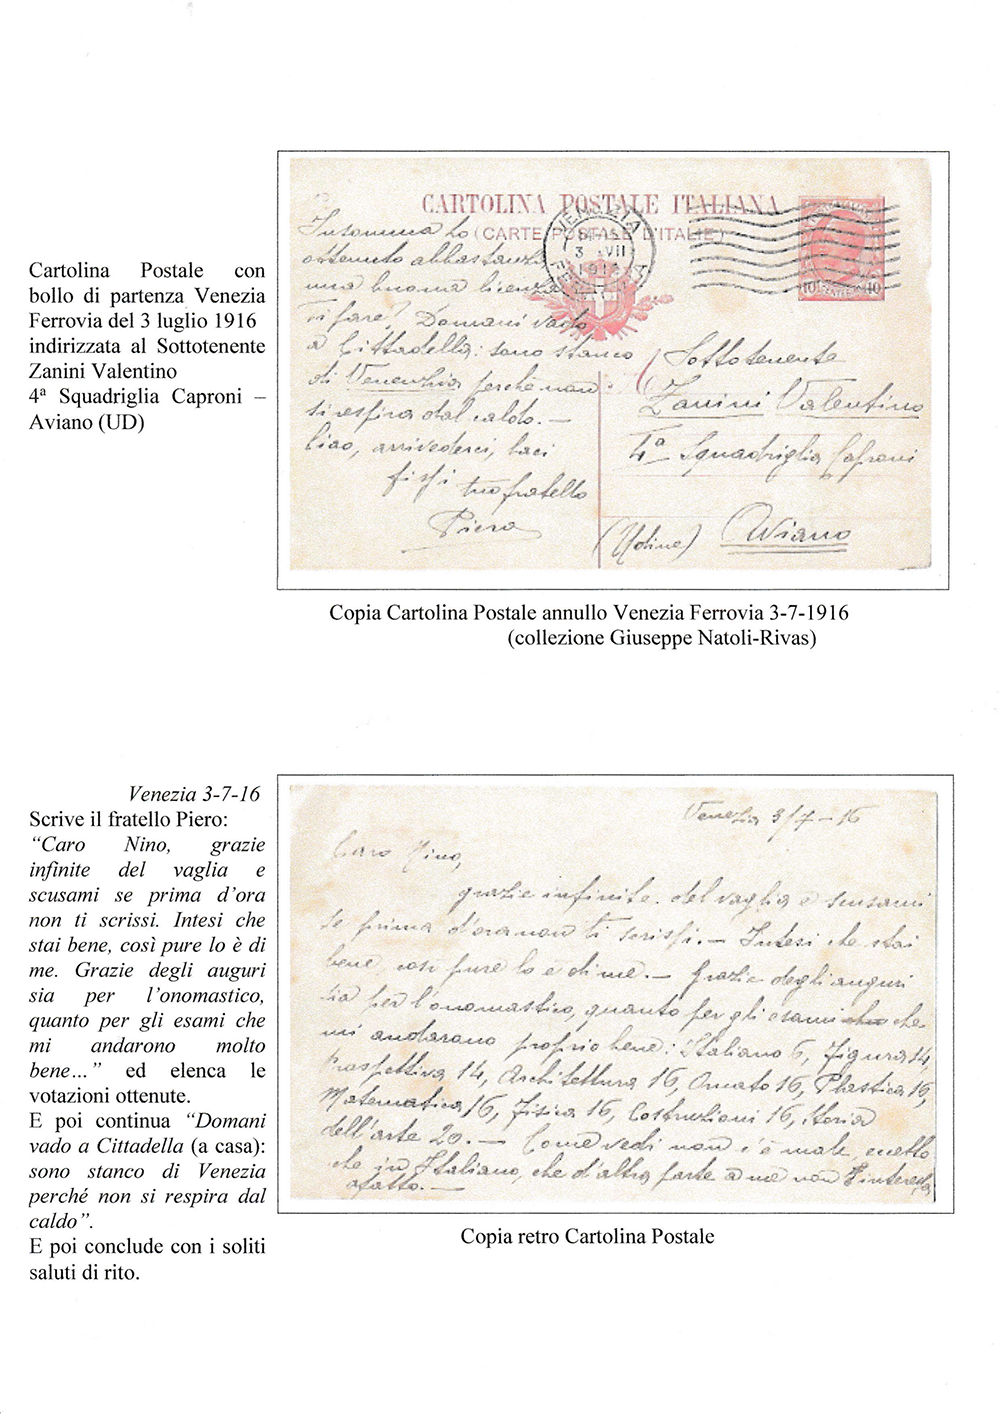 Cartolina Postale con
bollo di partenza Venezia
Ferrovia del 3 luglio 1916
indirizzata al Sottotenente
Zanini Valentino
4ª Squadriglia Caproni –
Aviano (UD)
CARTOLINA POSTALE ITALIANA
(CARTE POSTALE D'ITALIE)
Insomma ho
ottenuto abbastanza
una buona licenza
Ti pare? Domani vado
a Cittadella: sono stanco
di Venezia perchè non
si respira dal caldo. –
Ciao, arrivederci, baci
tuo fratello
Piero
10 10
Sottotenente
Zanini Valentino
4ª Squadriglia Caproni
(Udine) Aviano
Copia Cartolina Postale annullo Venezia Ferrovia 3-7-1916
(collezione Giuseppe Natoli-Rivas)
Venezia 3-7-16
Scrive il fratello Piero:
“Caro Nino, grazie
infinite del vaglia e
scusami se prima d’ora
non ti scrissi. Intesi che
stai bene, così pure lo è di
me. Grazie degli auguri
sia per l’onomastico,
quanto per gli esami che
mi andarono molto
bene…” ed elenca le
votazioni ottenute.
E poi continua “Domani
vado a Cittadella (a casa):
sono stanco di Venezia
perché non si respira dal
caldo”.
E poi conclude con i soliti
saluti di rito.
Venezia 3/7 – 16
Caro Nino,
grazie infinite del vaglia e scusami
se prima d'ora non ti scrissi. – Intesi che stai
bene, così pure lo è di me. – Grazie degli auguri
sia per l'onomastico, quanto per gli esami che che
mi andarono proprio bene: Italiano 6, Figura 14,
Prospettiva 14, Architettura 16, Ornato 16, Plastica 16,
Matematica 16, Fisica 16, Costruzioni 16, storia
dell'arte 20. – Come vedi non c'è male, eccetto
che in Italiano, che d'altra parte a me non m'interessa
affatto. –
Copia retro Cartolina Postale